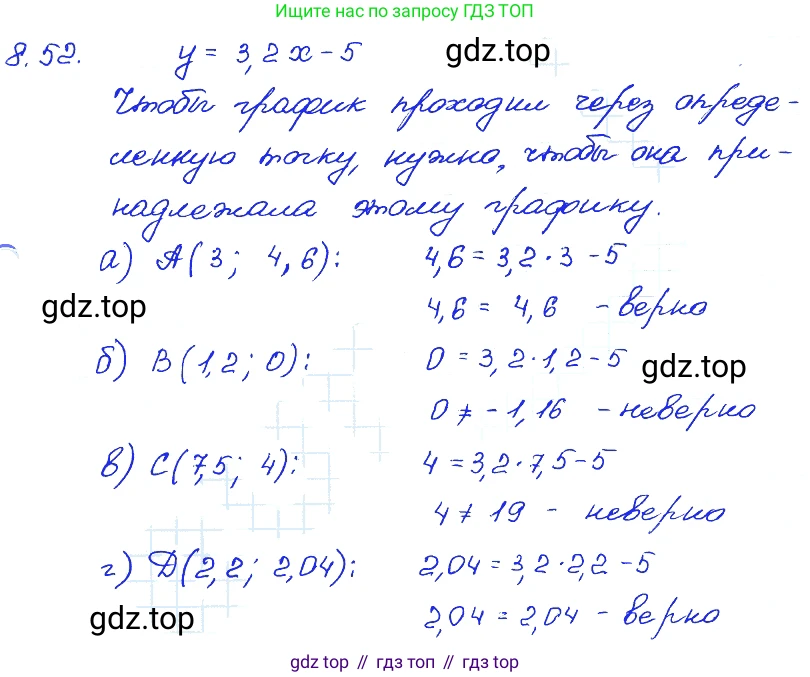 Ищите нас по запросу ГДЗ ТОП
8.52. y = 3,2x - 5 gdz.top
Чтобы график проходил через опреде-
ленную точку, нужно, чтобы она при-
надлежала этому графику.
а) A(3; 4,6): 4,6 = 3,2 · 3 - 5
gdz.top 4,6 = 4,6 - верно
б) B(1,2; 0): 0 = 3,2 · 1,2 - 5 gdz.top
0 ≠ -1,16 - неверно
в) C(7,5; 4): 4 = 3,2 · 7,5 - 5
4 ≠ 19 - неверно
г) Д(2,2; 2,04): 2,04 = 3,2 · 2,2 - 5
gdz.top 2,04 = 2,04 - верно
gdz top // гдз топ // gdz top